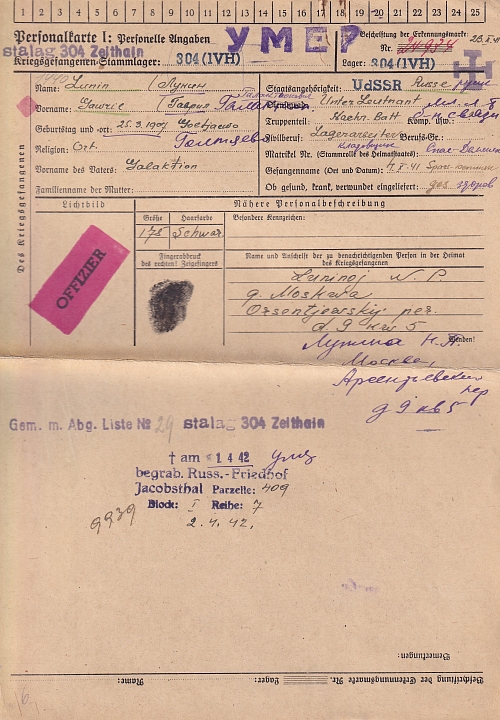 1 2 3 4 5 6 7 8 9 10 11 12 13 14 15 16 17 18 19 20 21 22 23 24 25
Personalkarte I: Personelle Angaben
УМЕР
Beschriftung der Erkennungsmarke
stalag 304 Zeithain
Nr.
Kriegsgefangenen-Stammlager: 304 (IVH)
Lager: 304 (IVH)
Des Kriegsgefangenen
Name: Lunin (Лунин
Staatsangehörigkeit: UdSSR Russe
Vorname: Gawriel (Гаврил
Dienstgrad: Unter Leutnant
Truppenteil: Nachr. Batt Komp. usw.:
Geburtstag und -ort: 25.3.1907
Zivilberuf: Lagerarbeiter Berufs-Gr.:
Religion: Ort.
Matrikel Nr. (Stammrolle des Heimatstaates)
Vorname des Vaters: Galaktion
Gefangennahme (Ort und Datum): 7.X.41
Familienname der Mutter:
Ob gesund, krank, verwundet eingeliefert: ges. здоров
Lichtbild
Nähere Personalbeschreibung
Größe Haarfarbe Besondere Kennzeichen:
178 Schwar
OFFIZIER
Fingerabdruck
des rechten! Zeigefingers
Name und Anschrift der zu benachrichtigenden Person in der Heimat
des Kriegsgefangenen
Luninoj N. P.
g. Moskwa
Arsentjewskij per.
d 9 kw 5
Wenden!
Лунина Н.П.
Москва,
Арсентьевский пер
д 9 кв 5
Gem. m. Abg. Liste № 29 stalag 304 Zeithain
† am 1. 4. 42 умер
begrab. Russ.-Friedhof
Jacobsthal Parzelle: 409
Block: I Reihe: 7
9939
2.4.42.
Bemerkungen:
Beschriftung der Erkennungsmarke Nr. Lager: Name: